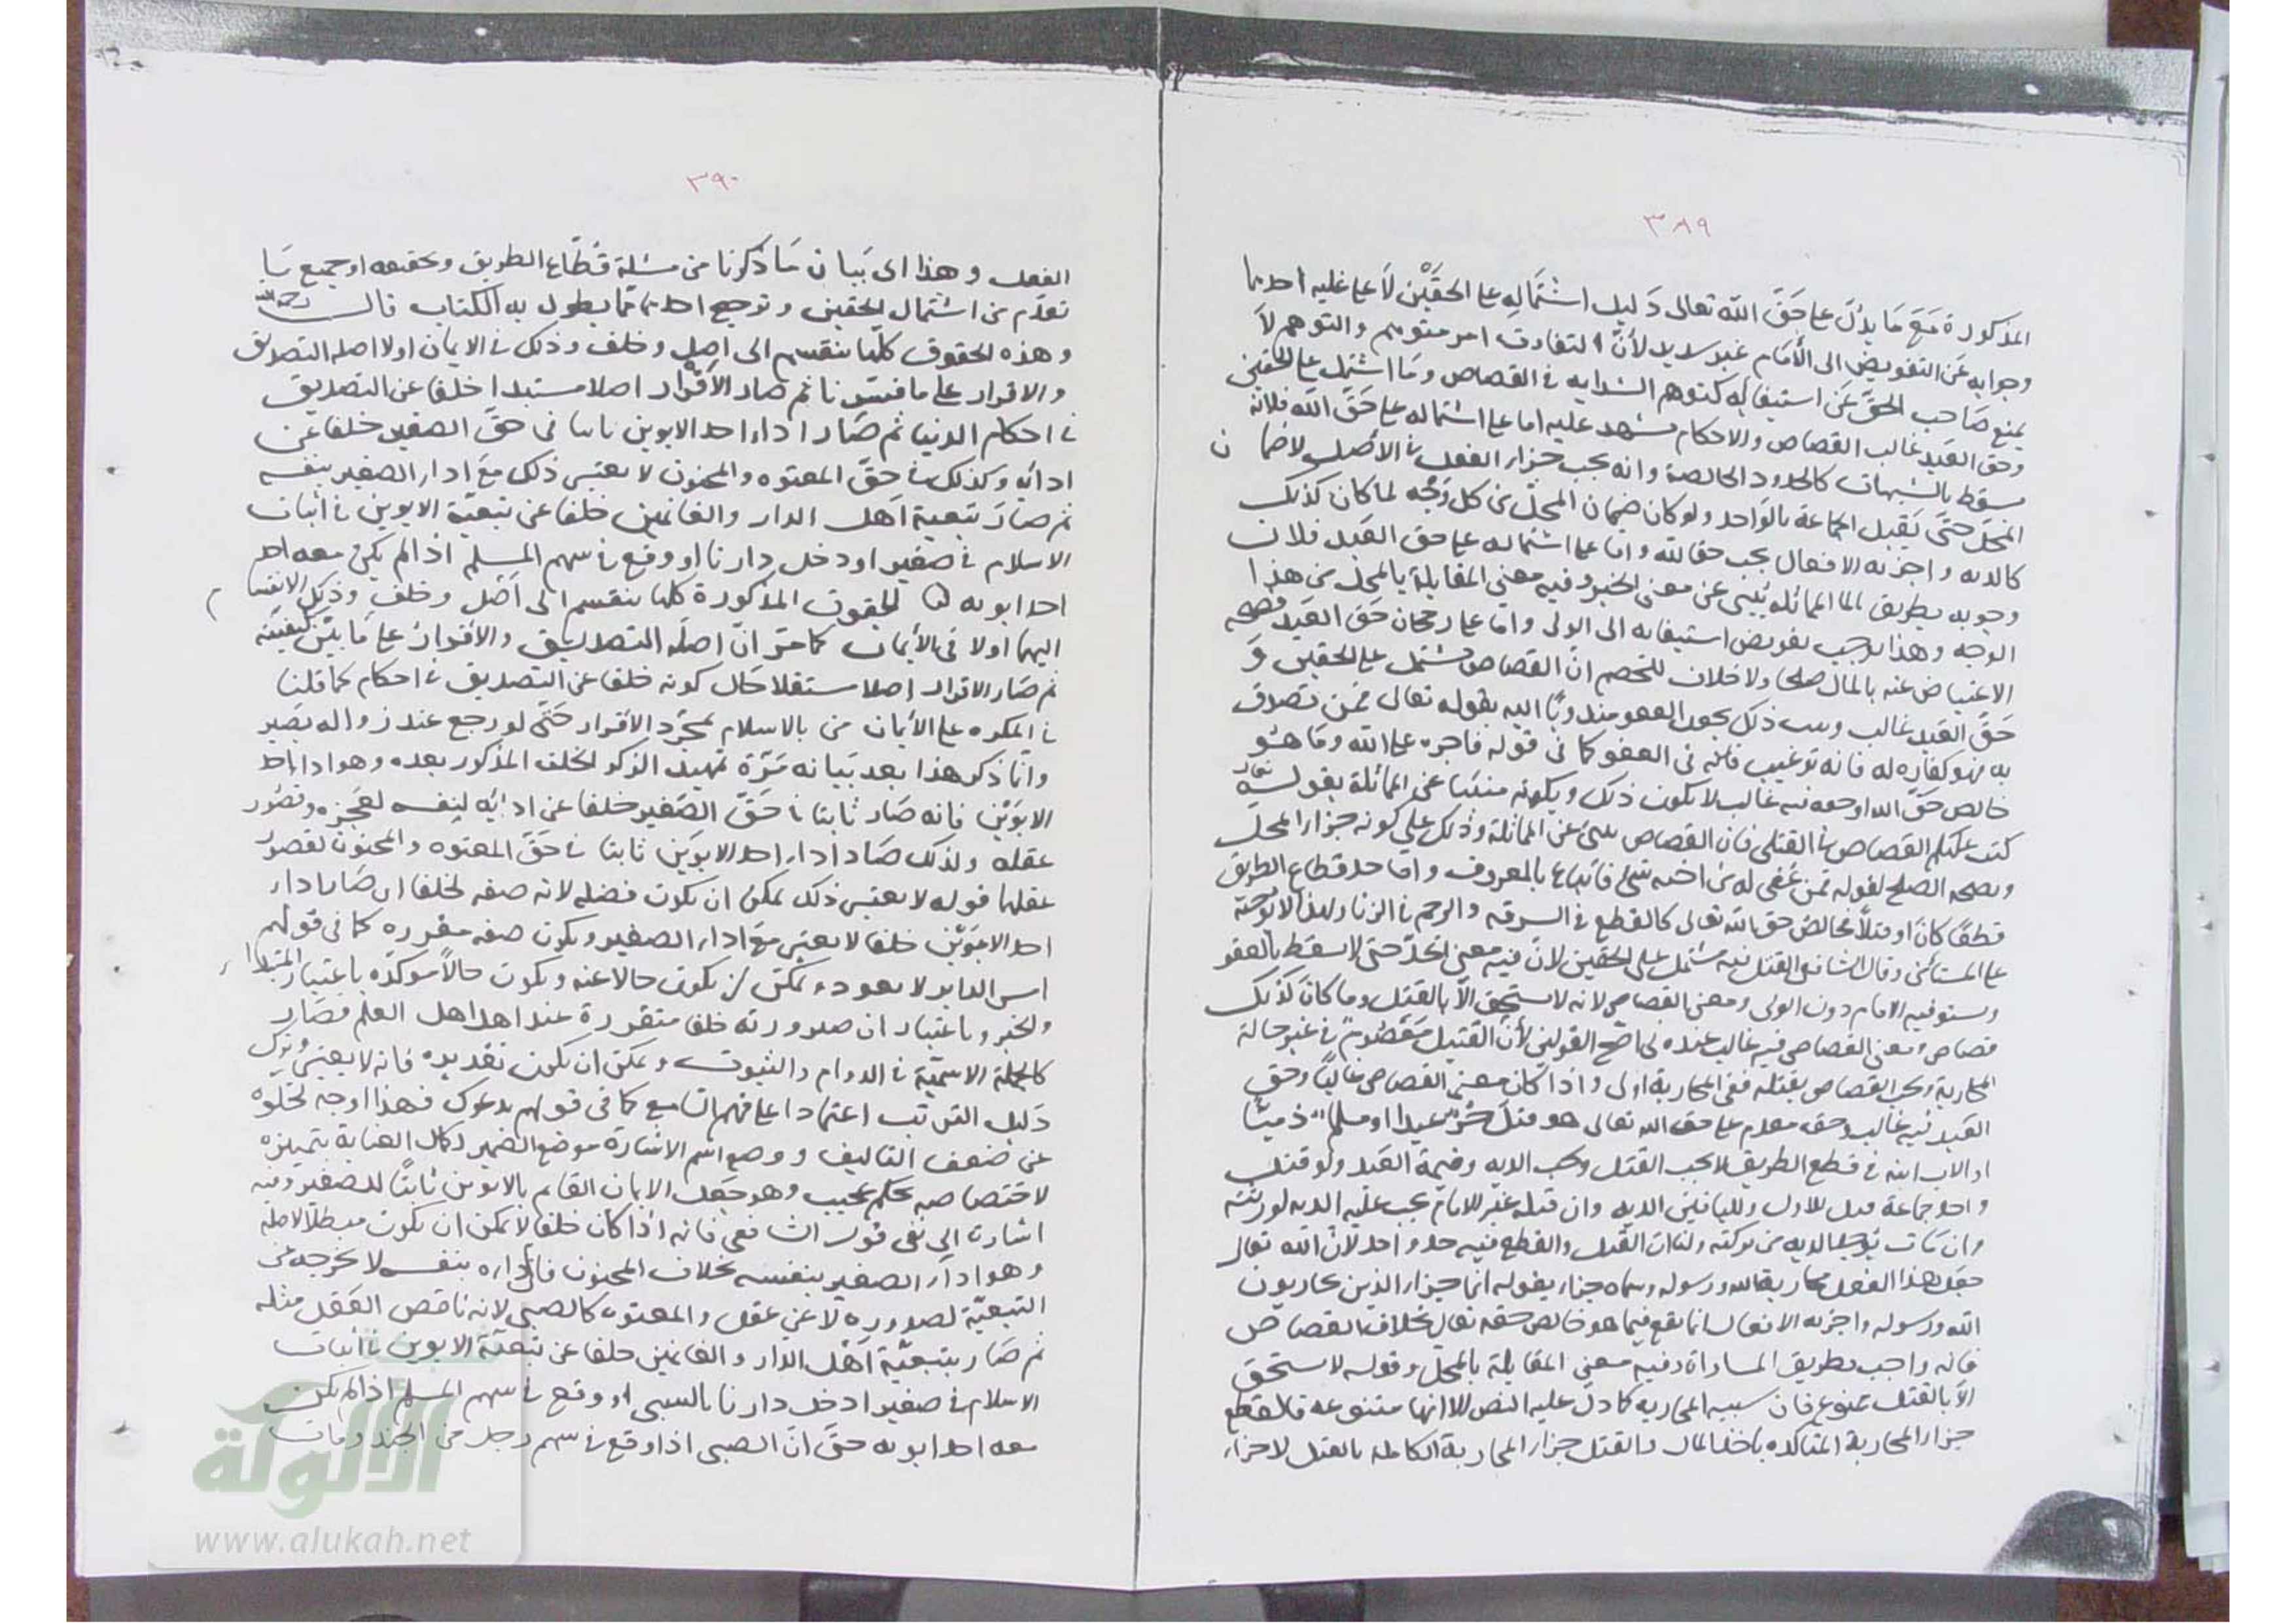 ٣٨٩
المذكورة مَعَ مَا يدلّ على حَقّ الله تعالى دَليل اشتماله على الحقَّيْن لاَ على غلبة احدهما
وجوابه عَن التفويض الى الأمَام غير سديد لأنّ التفاوت امر متوهم والتوهم لاَ
يمنع صَاحب الحقّ عَن استيفائه كتوهم السراية فى القصاص وَمَا اشتمل على الحقين
وحق العَبد غالب القصاص والاحكام تشهد عليه اما على اشتماله على حَقّ الله فلانه
سقط بالشبهات كالحدود الخالصة وانه يجب جزاء الفعل فى الأصل لا ضمان
المحَل حتّى يُقتل الجماعة بالوَاحد ولو كان ضمان المحل من كل وَجْه لما كان كذلك
كالديه واجزيه الافعال يجب حقا لله واما على اشتماله على حق العَبد فلان
وجوبه بطريق المماثلة يُنبى عن معنى الجبر وفيه معنى المقابلة بالمحل من هذا
الوجه وهذا يوجب تفويض استيفائه الى الولى واما على رجحان حَق العَبد فصحه
الاعتياض عنه بالمال صلحا ولا خلاف للخصم انّ القصاص مشتمل على الحقين وَ
حَقّ العَبد غالب ذلك العفو مندوبًا اليه بقوله تعالى فمن تصدق
به فهو كفاره له فانه ترغيب فى العفو كما فى قوله فاجره على الله وما هُو
خالص حَقّ الله او حقه فيه غالب لا يكون ذلك ويكونه منبئا عن المماثلة بقوله تعالى
كتب عليكم القصاص فى القتلى فان القصاص ينبئ عن المماثلة وذلك على كونه جزاء المحل
وبصحه الصلح لقوله فمن عُفى له من اخيه شئ فاتباع بالمعروف واما حد قطاع الطريق
قطعًا كانَ او قتلًا فخالصُ حق الله تعالى كالقطع فى السرقه والرجم فى الزنا ولهذا لا نوجبه
على المستأمن وقال الشافعى القتل فيه مشتمل على الحقين لانّ فيه معنى الحدّ حتى لا يسقط بالعفو
ويستوفيه الامام دون الولى ومعنى القصاص لانه لا يستحق الاّ بالقتل وما كان كذلك
قصاص ومعنى القصاص فيه غالب عنده فى اصَح القولين لأنّ القتيل مَعْصُومٌ فى غير حالة
المحاربة ويجب القصاص بقتله ففى المحاربة اولى واذا كان معنى القصاص غالبًا وحق
العَبد فيه غالب وحق مقدم على حق الله تعالى هو قتلَ حُرٌّ عبدا او مسلمٌ ذميّا
او الاب ابنه فى قطع الطريق لا يجب القتل ويجب الديه وقيمة العَبد ولو قتل
واحد جماعة قتل للاول وللباقين الديه وان قتله غير الامام يجب عليه الديه لورثته
وان مَات يُؤخذ الديه من تركته ولنا ان القتل والقطع فيه حد واحد لانّ الله تعالى
جعل هذا الفعل محاربة الله ورسوله وسماه جزاء بقوله انما جزاء الذين يحاربون
الله ورسوله واجزيه الافعال انما تقع فيما هو خالص حقه تعالى بخلاف القصاص
فانه واجب بطريق المساواة وفيه معنى المقابلة بالمحل وقوله لا يستحق
الاّ بالقتل ممنوع فان سببه المحاربه كما دلّ عليه النص الا انها متنوعه فالقطع
جزاء المحاربة المتأكده باخذ المال والقتل جزاء المحاربة الكاملة بالقتل لا جزاء
٣٩٠
الفعل وهذا اى بَيان مَا ذكرنا من مسئلة قُطّاع الطريق وتحقيقه او جميع مَا
تقدّم من اشتمال الحقين وترجيح احدهما ممّا يطول به الكتاب قال رحمه الله
وهذه الحقوق كلّها ينقسم الى اصل وخلف وذلك فى الايمان اولا اصله التصديق
والاقرار على ما فسّرنا ثم صار الاقرار اصلا مستبدا خلفا عن التصديق
فى احكام الدنيا ثم صَار اداء احد الابوين ثابتا فى حقّ الصغير خلفا عن
ادائه وكذلك فى حَقّ المعتوه والمجنون لا يعتبر ذلك مَعَ اداء الصغير بنفسه
ثم صارَ تبعية اهل الدار والغانمين خلفا عن تبعيّة الابوين فى اثبات
الاسلام فى صغير اودخل دارنا او وقع فى سهم المسلم اذا لم يكن معه احد
احد ابويه الحقوق المذكورة كلّها ينقسم الى اَصْل وخلف وذلك الانقسام
اليهما اولا فى الأيمان كما مرّ انّ اصله التصديق والأقرار على مَا بيّن كيفيته
ثم صَار الاقرار اصلا مستقلا حَال كونه خلفا عن التصديق فى احكام كما قلنا
فى المكره على الأيمان من بالاسلام بمجرّد الأقرار حتّى لو رجع عند زواله يَصير
وانّما ذكر هذا بعد بَيانه مَرّة تمهيد الذكر الخلف المذكور بعده وهو اداء احد
الابوَيْن فانه صَار ثابتا فى حَقّ الصَغير خلفا عن ادائه لنفسه لعَجزه وقصُور
عقله ولذلك صَار اداء احد الابوَين ثابتا فى حَقّ المعتوه والمجنون لقصُور
عقلهما قوله لا يعتبر ذلك يمكنُ ان يكون فضله لانه صفه لخلفا اى صَار اداء
احد الابوَيْن خلفا لا يعتبر مَعَ اداء الصغير ويكون صفه مقرره كما فى قولهم
امس الدابر لا يعود ويمكن ان يكون حالا عنه ويكون حالاً موكدّه باعتبار المبتدا
والخبر وباعتبار ان صيرورته خلفا متقررة عند اهل العلم فصَار
كالجملة الاسميّة فى الدوام والثبوت ويمكن ان يكون تقديره فانه لا يعتبر وترك
دَليل الترتب اعتمادا على فهم السّامع كما فى قولهم يدعوك فهذا اوجه لخلوه
عن ضعف التاليف ووضع اسم الاشارة موضع الضمير لكمال العناية بتميزه
لاختصاصه بحكم عجيب وهو جَعل الايمان القائم بالابوين ثابتًا للصغير وفيه
اشارت الى نفى قول الشافعى فانه اذا كان خلفا لا يمكن ان يكون مبطلا لاصله
وهو اداء الصغير بنفسه بخلاف المجنون فان اداره بنفسه لا يخرجه عن
التبعيّة لصدوره لا عن عقل والمعتوه كالصبى لانه ناقص العَقل مثله
ثم صَار تبعيّة اَهْل الدار والغانمين خلفا عن تبعيّة الابوين فى اثبات
الاسلام فى صغير ادخل دارنا بالسبى او وقع فى سهم المسلم اذا لم يكن
معه احد ابويه حتّى انّ الصبى اذا وقع فى سهم رجل من الجند ومات
الألوكة
www.alukah.net